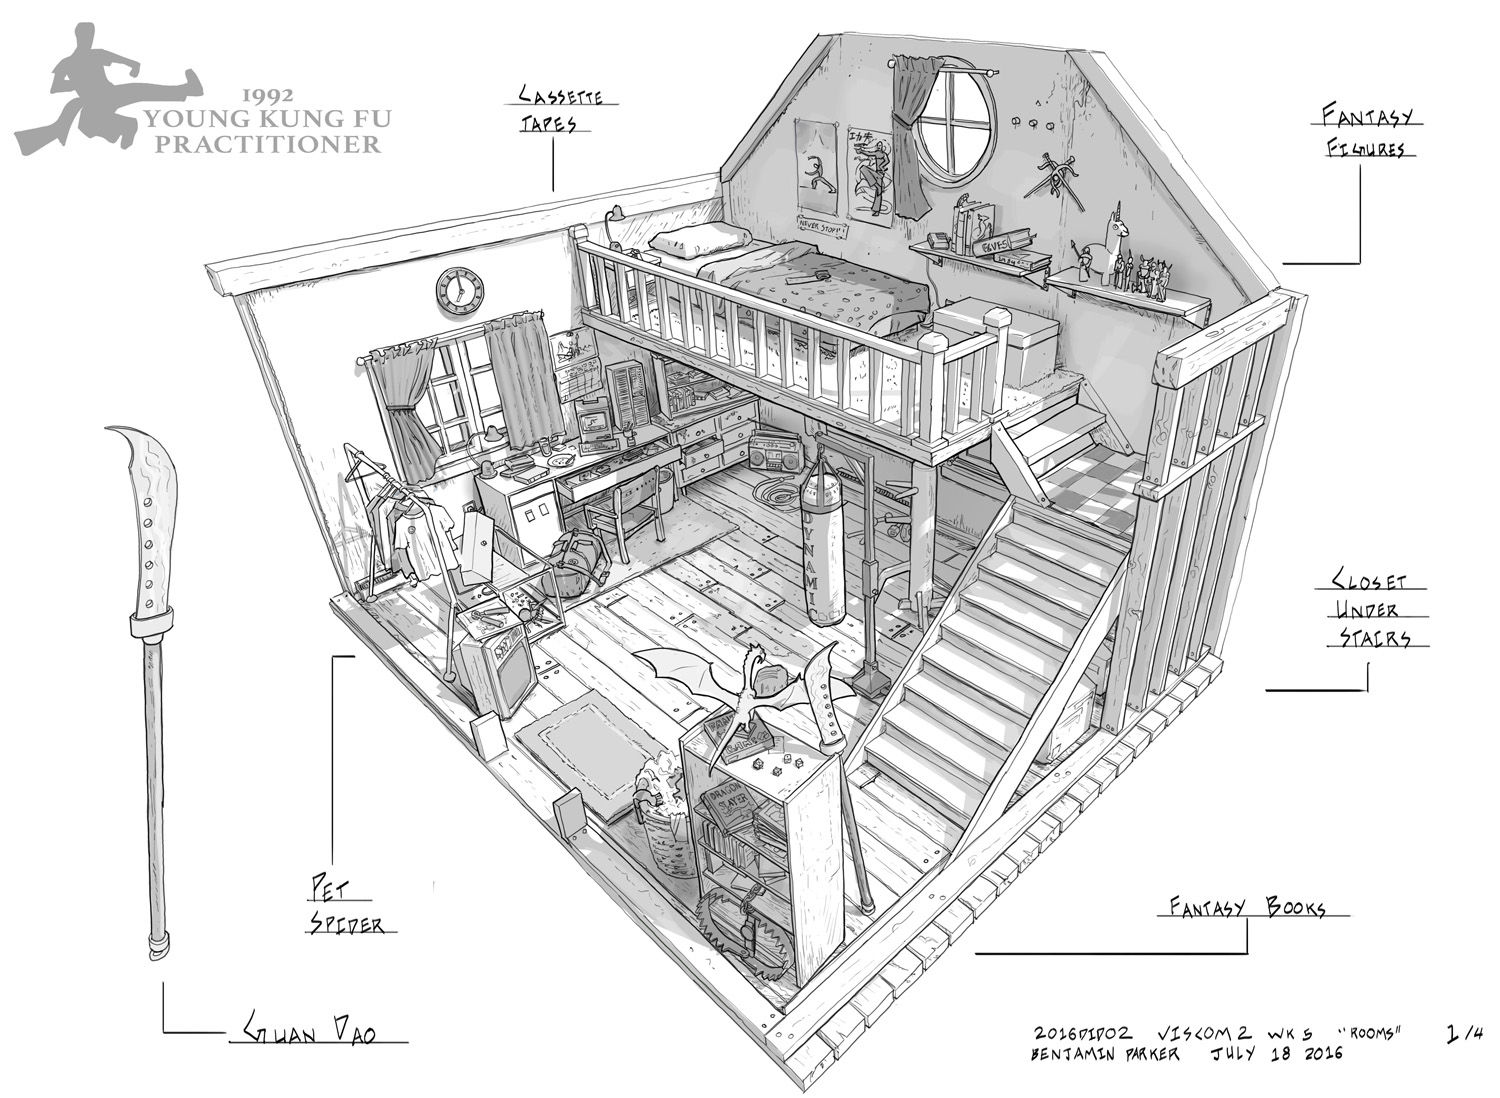 1992
YOUNG KUNG FU
PRACTITIONER
CASSETTE
TAPES
FANTASY
FIGURES
NEVER STOP!!
ELVES
DYNAMI
CLOSET
UNDER
STAIRS
DRAGON
SLAYER
PET
SPIDER
FANTASY BOOKS
GUAN DAO
2016DID02 VISCOM2 WK 5 "ROOMS" 1/4
BENJAMIN PARKER JULY 18 2016